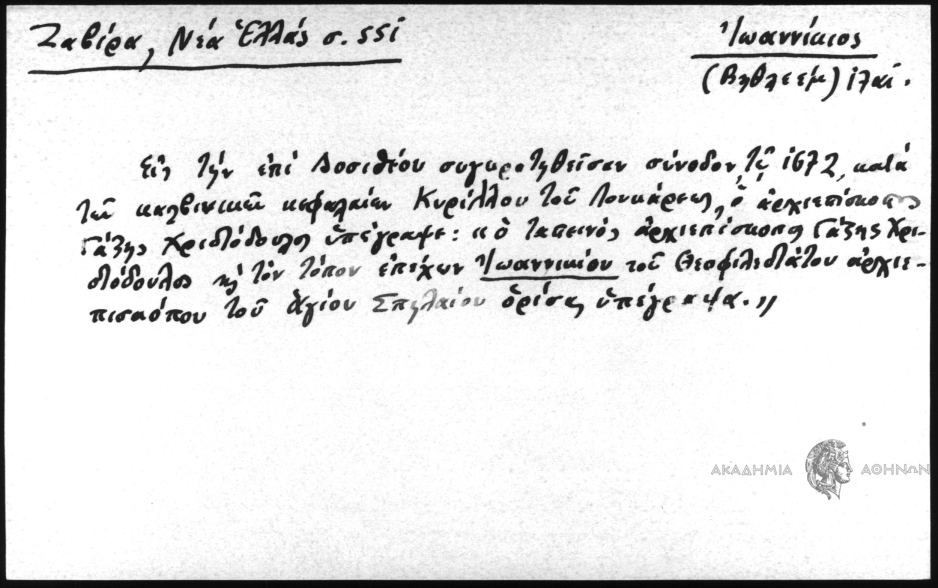 Ζαβίρα, Νέα Ἑλλάς σ. 551
Ἰωαννίκιος
(Βηθλεέμ)
Εἰς τὴν ἐπὶ Δοσιθέου συγκροτηθεῖσαν σύνοδον, τῷ 1672, κατὰ
τῶν καλβινικῶν κεφαλαίων Κυρίλλου τοῦ Λουκάρεως, ὁ ἀρχιεπίσκοπος
Γάζης Χριστόδουλος ὑπέγραψε: «ὁ ταπεινὸς ἀρχιεπίσκοπος Γάζης Χρι-
στόδουλος κ τὸν τόπον ἐπέχων Ἰωαννικίου τοῦ Θεοφιλεστάτου ἀρχιε-
πισκόπου τοῦ Ἁγίου Σπηλαίου ὁρίσας ὑπέγραψα.»
ΑΚΑΔΗΜΙΑ ΑΘΗΝΩΝ